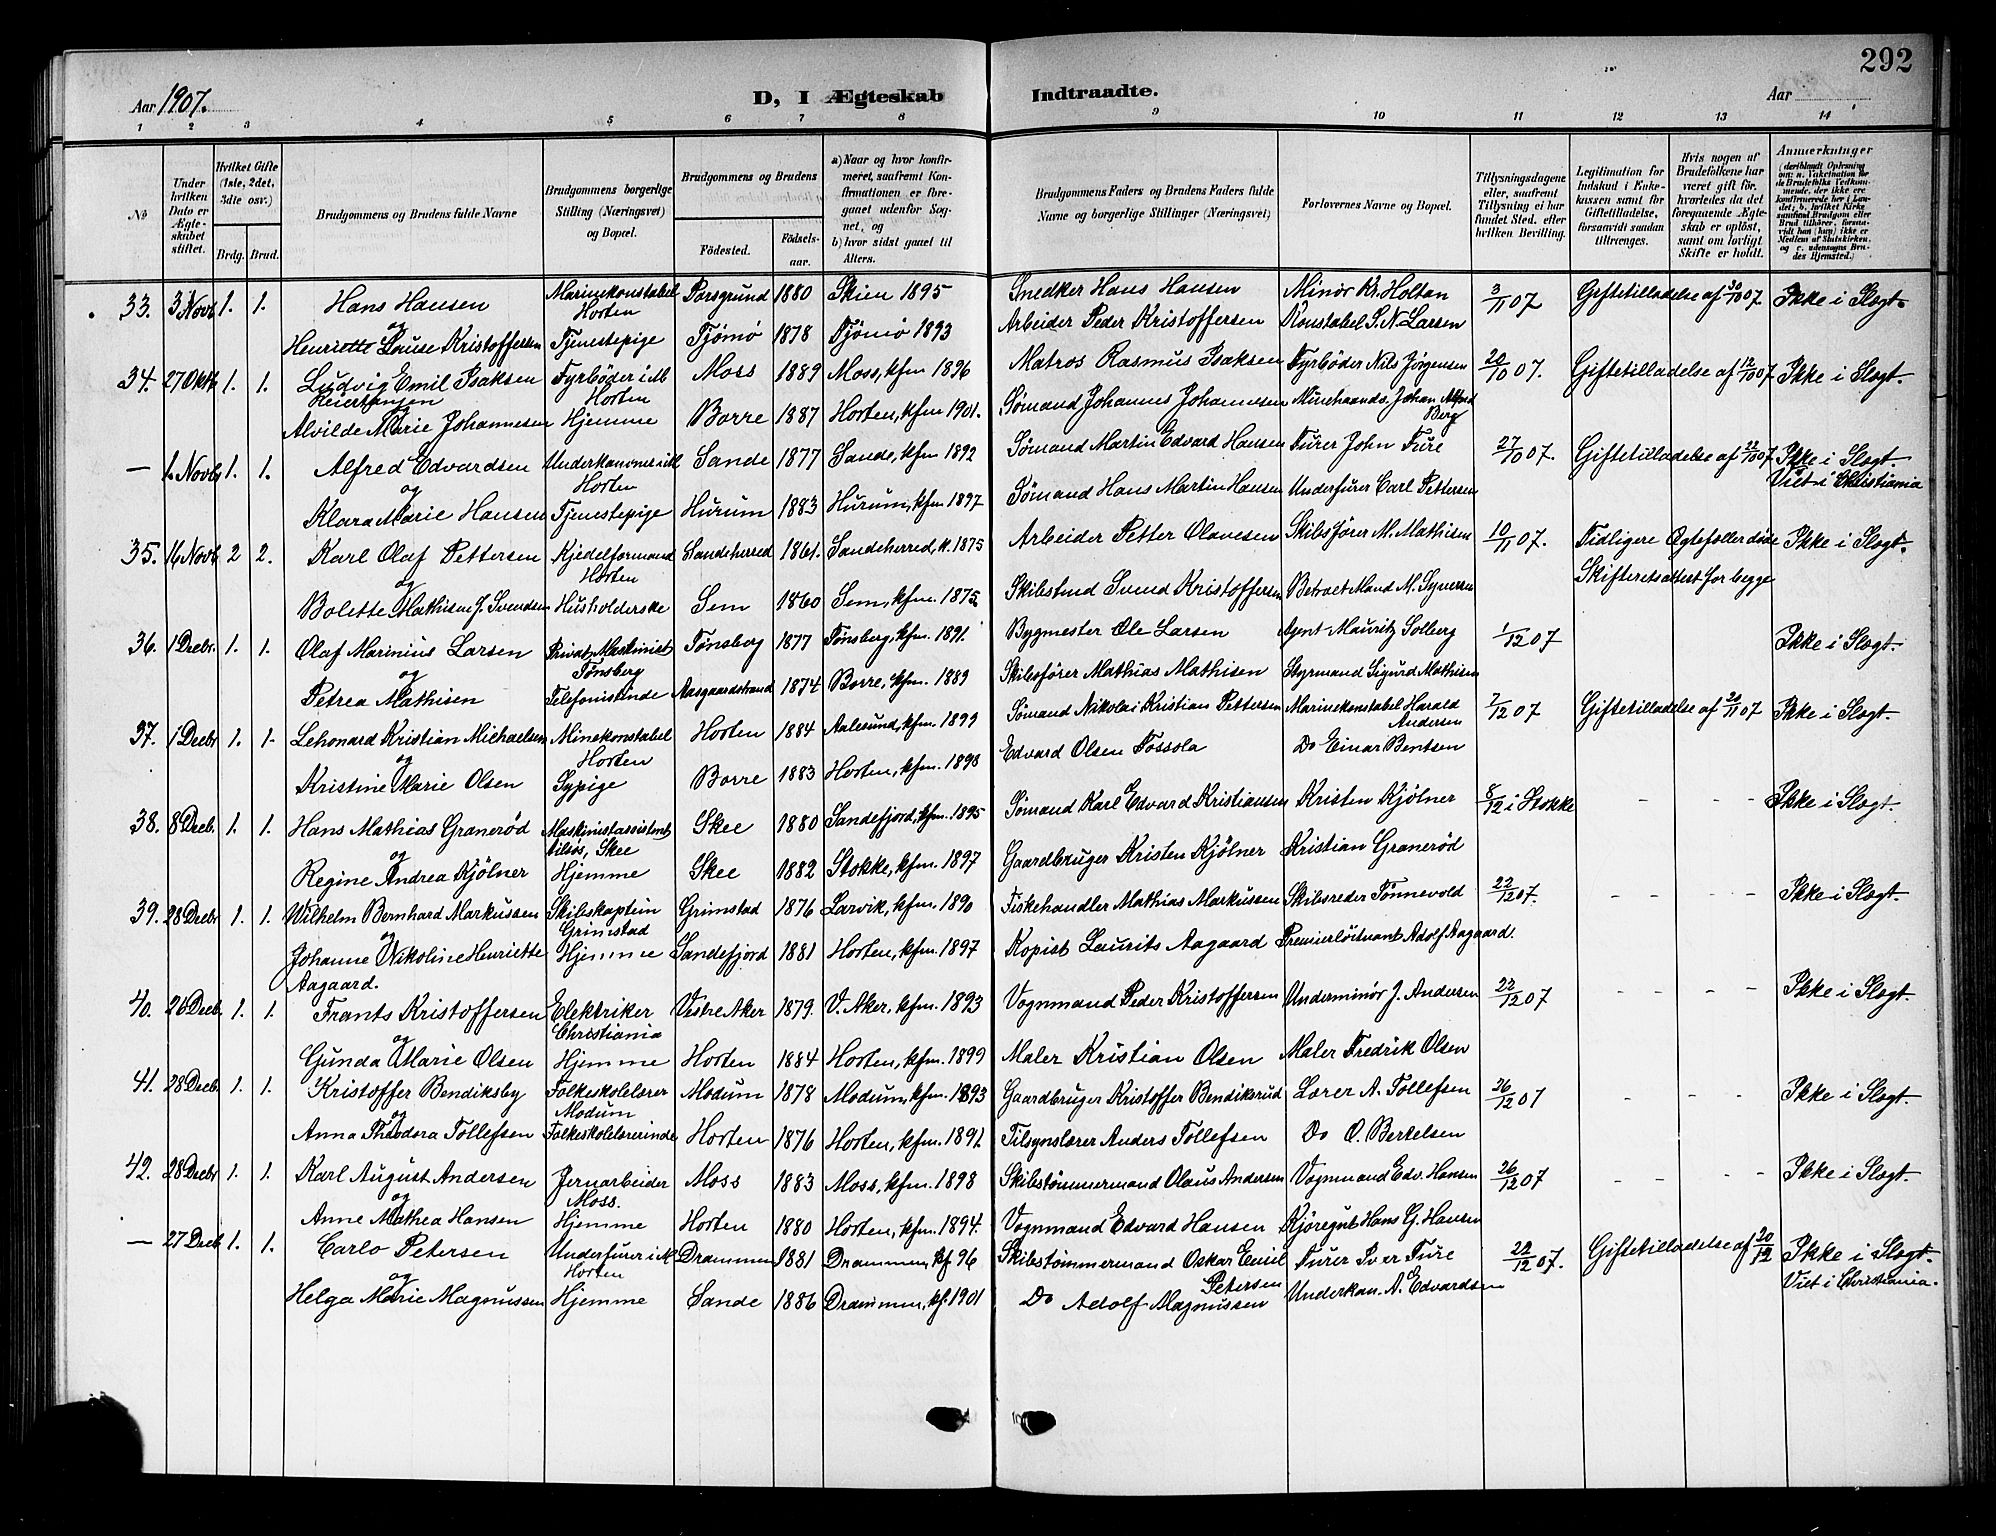 292
Aar 1907.
D, I Ægteskab Indtraadte.
Aar
1 2 3 4 5 6 7 8 9 10 11 12 13 14
No
Under hvilken Dato er Ægteskabet stiftet.
Hvilket Gifte (1ste, 2det, 3die osv.)
Brdg. Brud.
Brudgommens og Brudens fulde Navne
Brudgommens borgerlige Stilling (Næringsvei) og Bopæl.
Brudgommens og Brudens
Födested. Födselsaar.
a) Naar og hvor konfirmeret, saafremt Konfirmationen er foregaaet udenfor Sognet, og b) hvor sidst gaaet til Alters.
Brudgommens Faders og Brudens Faders fulde Navne og borgerlige Stillinger (Næringsvei)
Forlovernes Navne og Bopæl.
Tillysningsdagene eller, saafremt Tillysning ei har fundet Sted, efter hvilken Bevilling.
Legitimation for Indskud i Enkekassen samt for Giftetilladelse, forsaavidt saadan tiltrænges.
Hvis nogen af Brudefolkene har været gift för, hvorledes da det foregaaende Ægteskab er oplöst, samt om lovligt Skifte er holdt.
Anmerkninger
33. 3 Novb. 1. 1. Hans Hansen Marinekonstabel Porsgrund 1880 Skien 1895 Snedker Hans Hansen Minör Kr. Holtan 3/11 07 Giftetilladelse af 30/10 07 Ikke i Slægt.
og Horten
Henriette Louise Kristoffersen Tjenestepige Tjömö 1878 Tjömö 1893 Arbeider Peder Kristoffersen Konstabel S. N. Larsen
34. 27 Oktb. 1. 1. Ludvig Emil Isaksen Fyrböder i M Moss 1889 Moss, kfm 1896 Matros Rasmus Isaksen Fyrböder Nils Jörgensen 20/10 07. Giftetilladelse af 12/10 07 Ikke i Slægt.
Horten
Alvilde Marie Johannesen Hjemme Borre 1887 Horten, kfm 1901. Sömand Johannes Johannesen Minehaandv. Johan Alfred Berg
— 1. Novb. 1. 1. Alfred Edvardsen Underkanoner i M Sande 1877 Sande, kfm 1892 Sömand Martin Edvard Hansen Furer John Fure 27/10 07. Giftetilladelse af 22/10 07 Ikke i Slægt.
og Horten Viet i Christiania
Klara Marie Hansen Tjenestepige Hurum 1883 Hurum, kfm 1897 Sömand Hans Martin Hansen Underfurer Carl Pettersen
35. 16 Novb. 2 2. Karl Olaf Pettersen Kjedelformand Sandeherred 1861. Sandeherred, k. 1875 Arbeider Petter Olavesen Skibsförer M. Mathisen 10/11 07. Tidligere Ægtefæller döde Ikke i Slægt.
og Horten Skifteretsattest for begge
Bolette Mathisen f. Svendsen Husholderske Sem 1860 Sem, kfm. 1875. Skibstmd Svend Kristoffersen Betroet Mand M. Syversen
36. 1 Decbr. 1. 1. Olaf Marinius Larsen Privat Maskinist Tönsberg 1877 Tönsberg, kfm. 1891. Bygmester Ole Larsen Agent Mauritz Solberg 1/12 07 Ikke i Slægt.
og Tönsberg
Petrea Mathisen Telefonistinde Aasgaardstrand 1874 Borre, kfm. 1889 Skibsförer Mathias Mathisen Styrmand Sigurd Mathisen
37. 1 Decbr 1. 1. Lehonard Kristian Michaelsen Minekonstabel Horten 1884 Aalesund, kfm. 1899 Sömand Nikolai Kristian Pettersen Marinekonstabel Harald Andersen 1/12 07 Giftetilladelse af 20/11 07 Ikke i Slægt.
og Horten
Kristine Marie Olsen Sypige Borre 1883 Horten, kfm. 1898 Edvard Olsen Fossola Do Einar Bentsen
38. 8 Decb. 1. 1. Hans Mathias Granerød Maskinistassistent Skee 1880 Sandefjord, kfm. 1895 Sömand Karl Edvard Kristiansen Kristen Kjölner 8/12 i Stokke - - - Ikke i Slægt.
og Skee
Regine Andrea Kjölner Hjemme Skee 1882 Stokke, kfm. 1897 Gaardbruger Kristen Kjölner Kristian Granerød
39. 28 Decbr 1. 1. Wilhelm Bernhard Markussen Skibskaptein Grimstad 1876 Larvik, kfm. 1890 Fiskehandler Mathias Markussen Skibsreder Tönnevold 22/12 07. - - - - Ikke i Slægt.
og Grimstad
Johanne Nikoline Henriette Hjemme Sandefjord 1881 Horten, kfm. 1897 Kopist Laurits Aagaard Premierlöitnant Adolf Aagaard.
Aagaard.
40. 26 Decb. 1. 1. Frants Kristoffersen Elektriker Vestre Aker 1879. V. Aker, kfm. 1893 Vognmand Peder Kristoffersen Underminör J. Andersen 22/12 07 - - - - Ikke i Slægt.
og Christiania
Gunda Marie Olsen Hjemme Horten 1884 Horten, kfm. 1899 Maler Kristian Olsen Maler Fredrik Olsen
41. 28 Decb. 1. 1. Kristoffer Bendiksby Folkeskolelærer Modum 1878 Modum, kfm. 1893 Gaardbruger Kristoffer Bendiksrud Lærer A. Tollefsen 26/12 07 - - - Ikke i Slægt.
og Modum
Anna Theodora Tollefsen Folkeskolelærerinde Horten 1876 Horten, kfm. 1891. Tilsynslærer Anders Tollefsen Do O. Berkelsen
42. 28 Decbr 1. 1. Karl August Andersen Jernarbeider Moss 1883 Moss, kfm. 1898 Skibstömmermand Olaus Andersen Vognmand Edv. Hansen 26/12 07 - - - - Ikke i Slægt.
og Moss.
Anne Mathea Hansen Hjemme Horten 1880 Horten, kfm. 1894. Vognmand Edvard Hansen Kjöregut Hans G. Hansen
— 27 Decb 1. 1. Carlo Petersen Underfurer i M. Drammen 1881 Drammen, kf. 96 Skibstömmermand Oskar Emil Petersen Furer Fure 22/12 07. Giftetilladelse af 20/12 Ikke i Slægt.
og Horten Viet i Christiania.
Helga Marie Magnussen Hjemme Sande 1886 Drammen, kf. 1901 Do Adolf Magnussen Underkan. A. Edvardsen